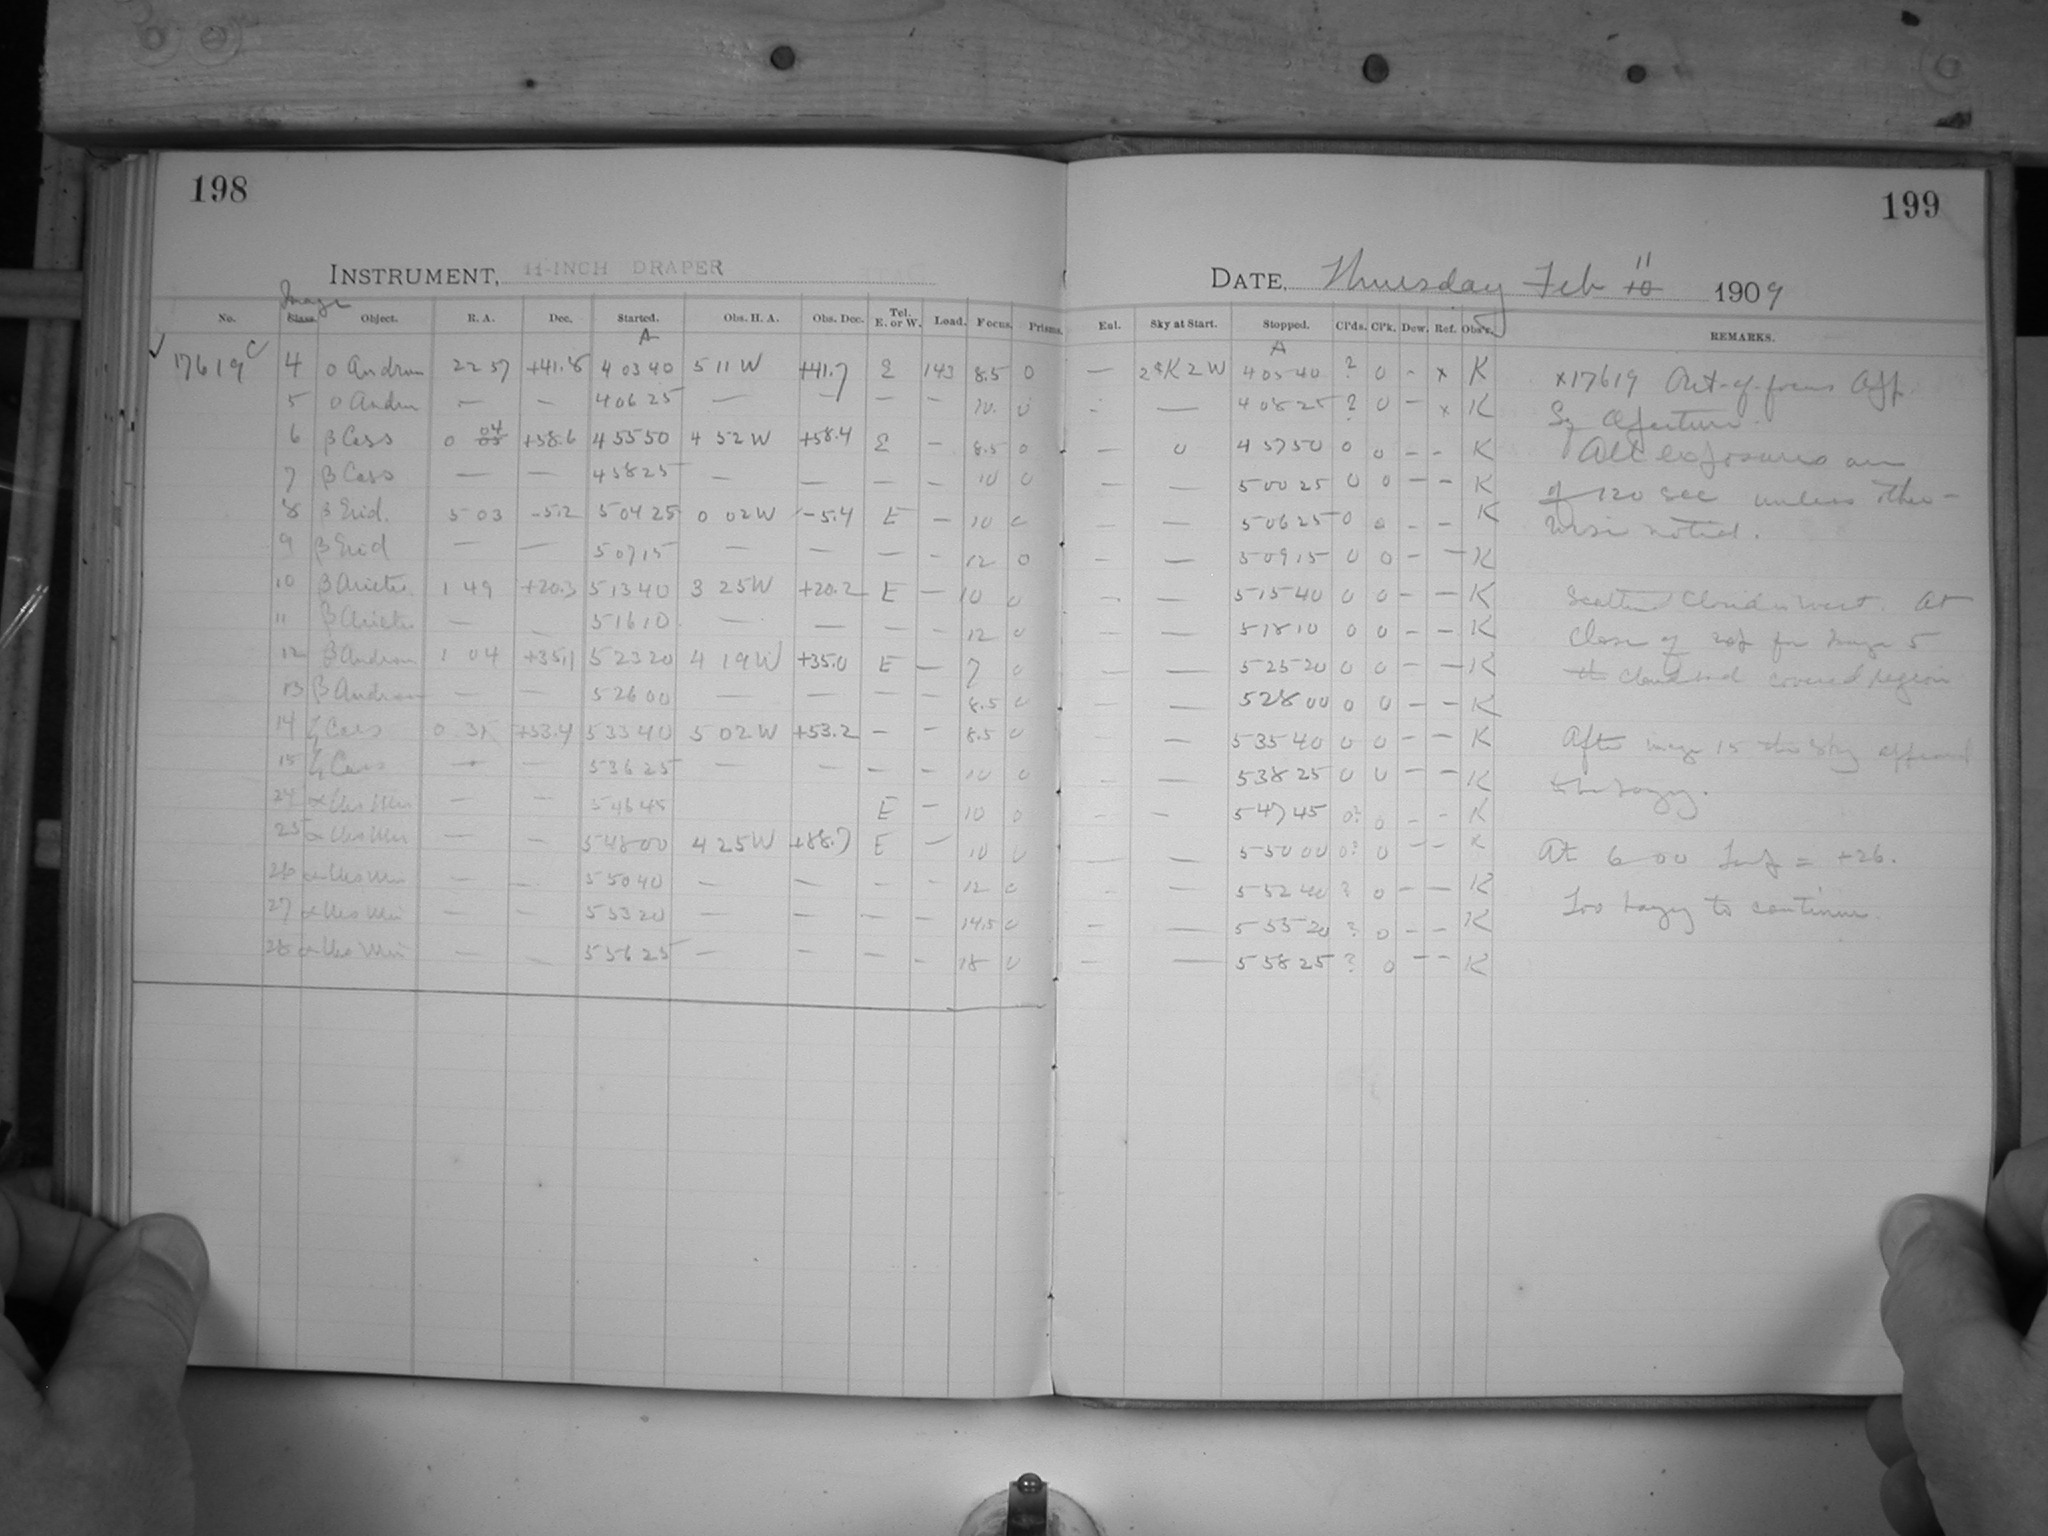 198
199
INSTRUMENT, 11-INCH DRAPER
DATE, Thursday Feb 10 11 1909
Image
No. Class. Object. R. A. Dec. Started. Obs. H. A. Obs. Dec. Tel. E. or W. Load. Focus. Prisms.
Eal. Sky at Start. Stopped. Cl'ds. Cl'k. Dew. Ref. Obs'r. REMARKS.
A
A
✓ 17619 C 4 o Androm 22 57 +41.8 4 03 40 5 11 W +41.7 E 143 8.5 0 — 2 K 2 W 4 05 40 ? 0 - x K
5 o Andm — — 4 06 25 — — — — 10. 0 — — 4 08 25 ? 0 — x K
6 β Cass 0 05 04 +58.6 4 55 50 4 52 W +58.4 E — 8.5 0 — 0 4 57 50 0 0 - - K
7 β Cass — — 4 58 25 — — — — 10 0 — — 5 00 25 0 0 — — K
8 β Erid. 5 03 -5.2 5 04 25 0 02 W -5.4 E — 10 0 — — 5 06 25 0 0 - — K
9 β Erid — — 5 07 15 — — — — 12 0 — — 5 09 15 0 0 — — K
10 β Arietis. 1 49 +20.3 5 13 40 3 25 W +20.2 E — 10 0 - — 5 15 40 0 0 — — K
11 β Arietis — — 5 16 10 — — — — 12 0 — — 5 18 10 0 0 — — K
12 β Androm 1 04 +35.1 5 23 20 4 19 W +35.0 E — 7 0 — — 5 25 20 0 0 — — K
13 β Androm — — 5 26 00 — — — — 8.5 0 — — 5 28 00 0 0 — — K
14 ζ Cass 0 31 +53.4 5 33 40 5 02 W +53.2 — — 8.5 0 — — 5 35 40 0 0 — — K
15 ζ Cass — — 5 36 25 — — — — 10 0 — — 5 38 25 0 0 — — K
24 α Urs Min — — 5 46 45 E — 10 0 — — 5 47 45 0? 0 - - K
25 α Urs Min — — 5 48 00 4 25 W +88.7 E — 10 0 — — 5 50 00 0? 0 — — K
26 α Urs Min — — 5 50 40 — — — — 12 0 - — 5 52 40 ? 0 — — K
27 α Urs Min — — 5 53 20 — — — — 14.5 0 — — 5 55 20 ? 0 — — K
28 α Urs Min — — 5 56 25 — — — — 18 0 — — 5 58 25 ? 0 — — K
x17619 Out-of-focus App.
Sq Aperture.
All exposures are
of 120 sec unless other-
wise noted.
Scattered Cloud in west. At
close of exp for Image 5
the cloud had covered region
After image 15 the sky appeared
to be hazy.
At 6 00 Temp = +26.
Too hazy to continue.